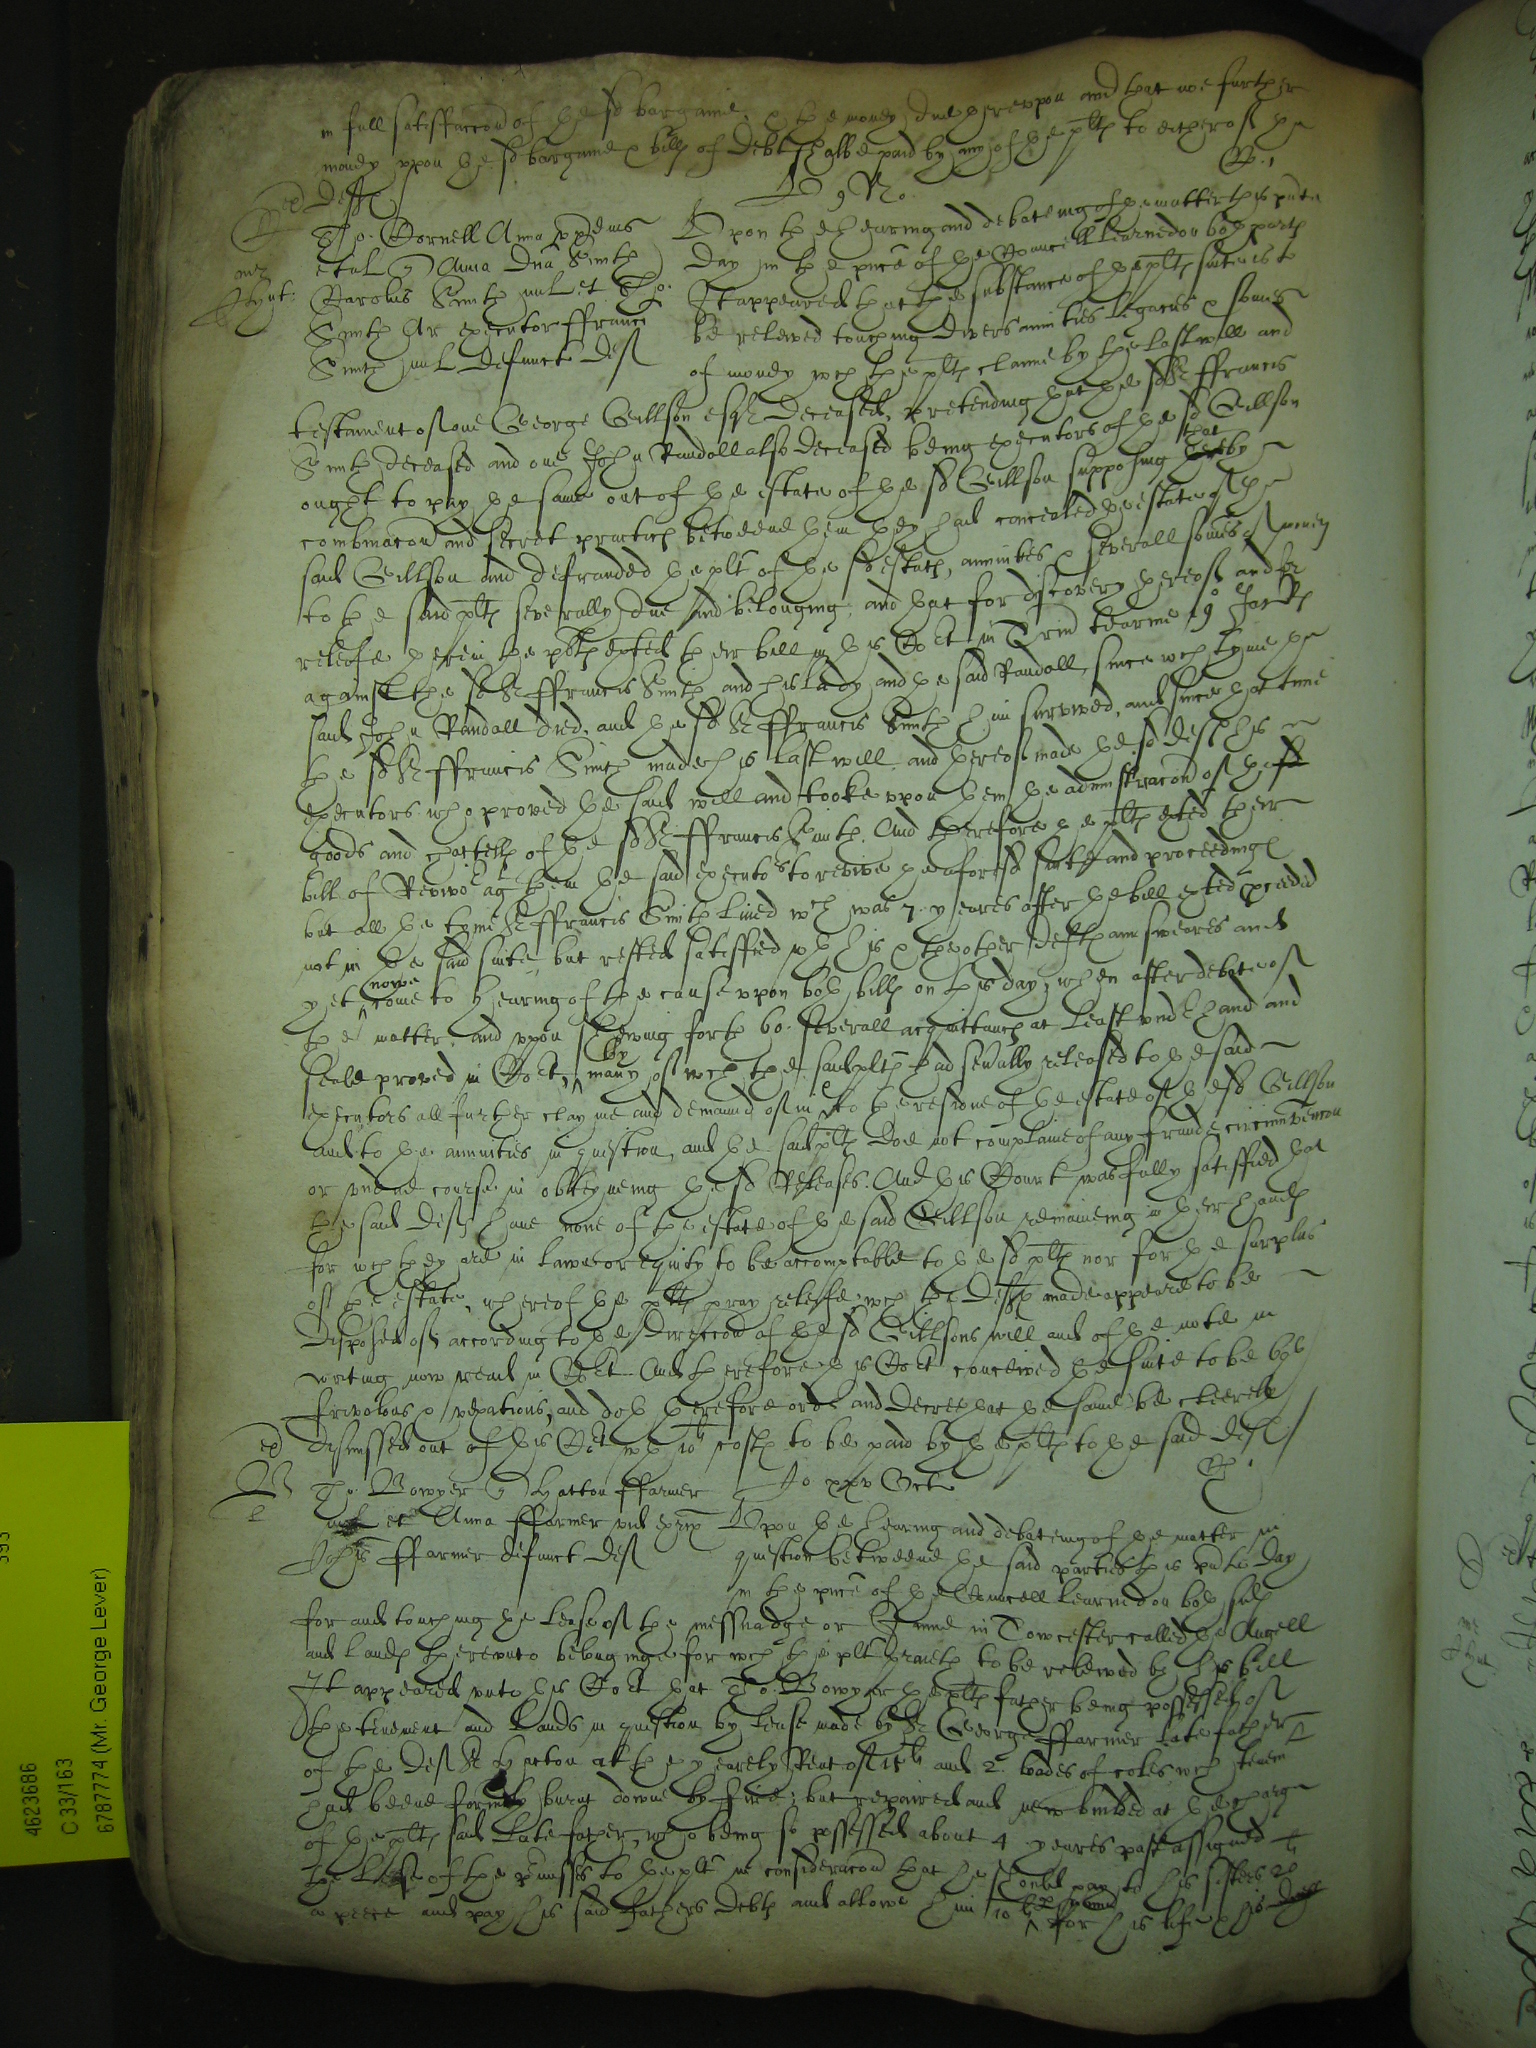 in full satisfaccon of the sd bargaine, & the money due thereupon and that noe further
money upon the sd bargaine & bill of debt shalbe paid by any of the plts to either of the
defts
D 9 No.
Tho. Cornell Anna
et al q Anna Dna Smith
Carolus Smith mil et Tho.
Smith Ar executor ffranc
Smith mil defunct def
Upon the hearing and debateing of the matter this pnte
day in the pnce of the Councell learned on both parts
It appeared that the substance of the plts suite is to
be releived touching divers annities legacies & somes
of money wch the plts claime by the last will and
testament of one George Gillson esqr deceased, pretending that the sd Sr ffrancis
Smith deceased and one John Randall also deceased being executors of the sd Gillson
ought to pay the same out of the estate of the sd Gillson supposing that by
combinacon and secret practice betweene them they had concealed the estate of the
said Gillson and defrauded the plts of the sd estate, annuities & severall somes of money
to the said plts severally due and belonging, and that for discovery thereof and for
releife therein the plts exted their bill in this Cort in Trin tearme 19 Jac Rs
against the sd Sr ffrancis Smith and his Lady and the said Randall, since wch tyme the
said John Randall died, and the sd Sr ffrancis Smith him survived, and since that time
the sd Sr ffrancis Smith made his last will and thereof made the sd defts his
executors who proved the said will and tooke upon them the administracon of the
goods and chattells of the sd Sr ffrancis Smith. And therefore the plts exted their
bill of Revivor agt them the said executors to revive the aforesd suite and proceedings
but all the tyme Sr ffrancis Smith lived wch was 7 yeares after the bill exted pceeded
not in the said suite, but rested satisfied wth his & the other defts answeares and
yet nowe come to hearing of the cause upon both bills on this day, when after debate of
the matter, and upon shewing forth 60 severall acquittances at least undr hand and
seale proved in Cort, by many of wch the said plts had sevally released to the said
executors all further clayme and demaund of in & to the residue of the estate of the sd Gillson
and to the annuities in question, and the said plts doe not complaine of any fraude circumvencon
or undue course in obteyneing the sd Releases. And this Court was fully satisfied that
the said defts have none of the estate of the said Gillson remaineing in their hands
for wch they are in lawe or equity to be accomptable to the sd plts nor for the surplus
of the estate, whereof the plts pray releife, wch the defts made appeare to be
disposed of according to the direccon of the sd Gillsons will and of the note in
writing now read in Cort. And therefore this Cort conceived the suite to be both
frivolous & vexatious, and doth therefore order and decree that the same be cleerely
dismissed out of this Cort wth 10 li costs to be paid by the plts to the said defts
Tho. Bowyer q Hatton ffarmer
mil et Anna ffarmer vid exrix
Johis ffarmer defunct def
Jo xxv Oct
Upon the hearing and debateing of the matter in
question betweene the said parties this pnte day
in the pnce of the Councell learned on both sides
for and touching the Lease of the messuadge or Inne in Towcester called the Angell
and Lands thereunto belonginge for wch the plt prayeth to be releived by his bill
It appeared unto this Cort that Tho. Bowyer the plts father being possessed of
the tenement and Lands in question by lease made by Sr George ffarmer late father
of the def Sr Hatton at the yearely Rent of 15 li and 2 loades of coles wch tenemt
had beene formerly burnt downe by fire, but repaired and new builded at the charge
of the plts said late father, who being so possessed about 4 yeares past assigned
the Lease of the pmisses to the plt in consideracon that he should pay to his sisters
a peece and pay his said fathers debts and allowe him 10 li p annu for his life & his
4623686
C 33/163
6787774 (Mr. George Lever)